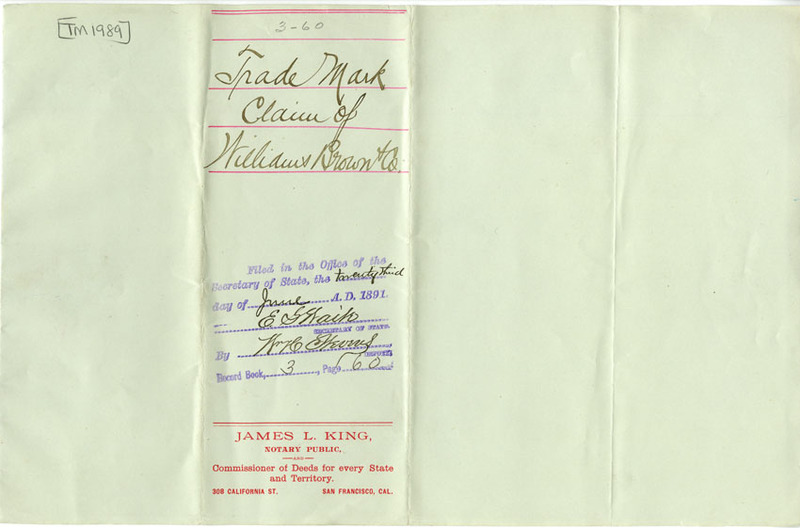 [TM1989]
3-60
Trade Mark
Claim of
Williams Brown & Co.
Filed in the Office of the
Secretary of State, the twenty third
day of June A.D. 1891.
E G Waite
SECRETARY OF STATE.
By Wm C
DEPUTY.
Record Book, 3, Page 60
JAMES L. KING,
NOTARY PUBLIC,
—AND—
Commissioner of Deeds for every State
and Territory.
308 CALIFORNIA ST. SAN FRANCISCO, CAL.